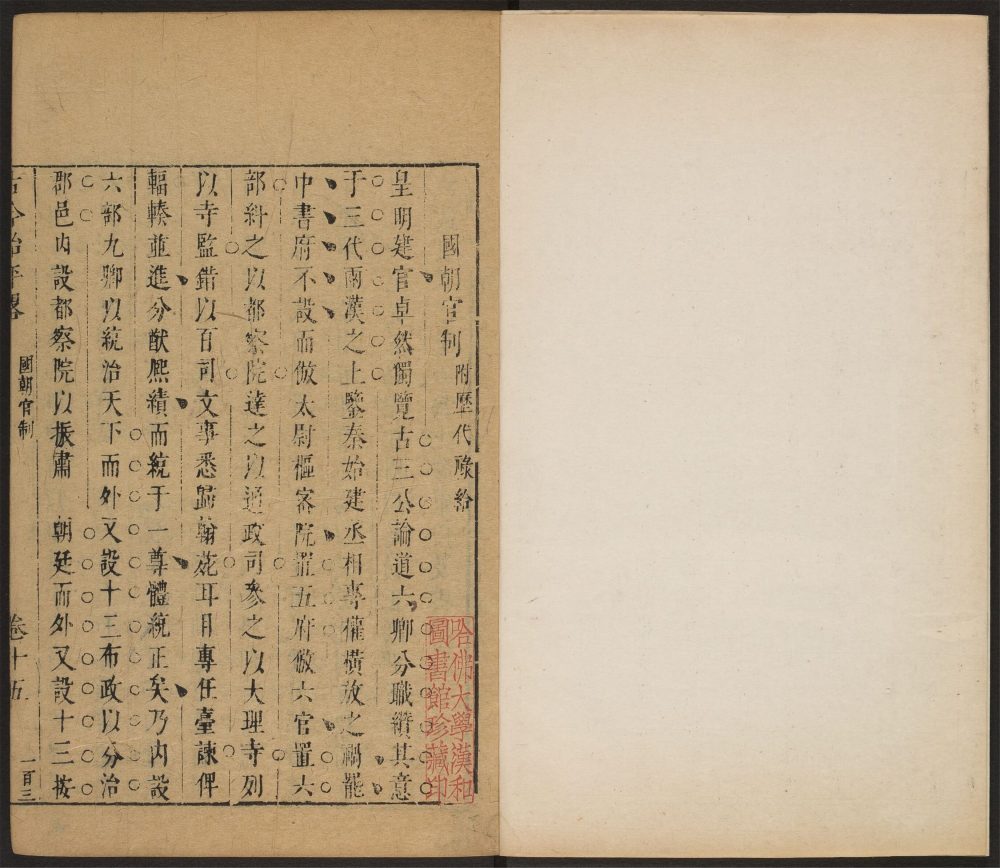 國朝官制 附歷代祿給
皇明建官卓然獨覽古三公論道六卿分職纘其意
于三代兩漢之上鑒秦始建丞相專權橫放之禍罷
中書府不設而倣太尉樞密院置五府倣六官置六
部糾之以都察院達之以通政司參之以大理寺列
以寺監錯以百司文事悉歸翰苑耳目專任臺諫俾
輻輳並進分猷熈績而統于一尊體統正矣乃內設
六部九卿以統治天下而外又設十三布政以分治
郡邑內設都察院以振肅 朝廷而外又設十三按
古今治平畧 國朝官制 卷十五 一百三
哈佛大學漢和
圖書館珍藏印